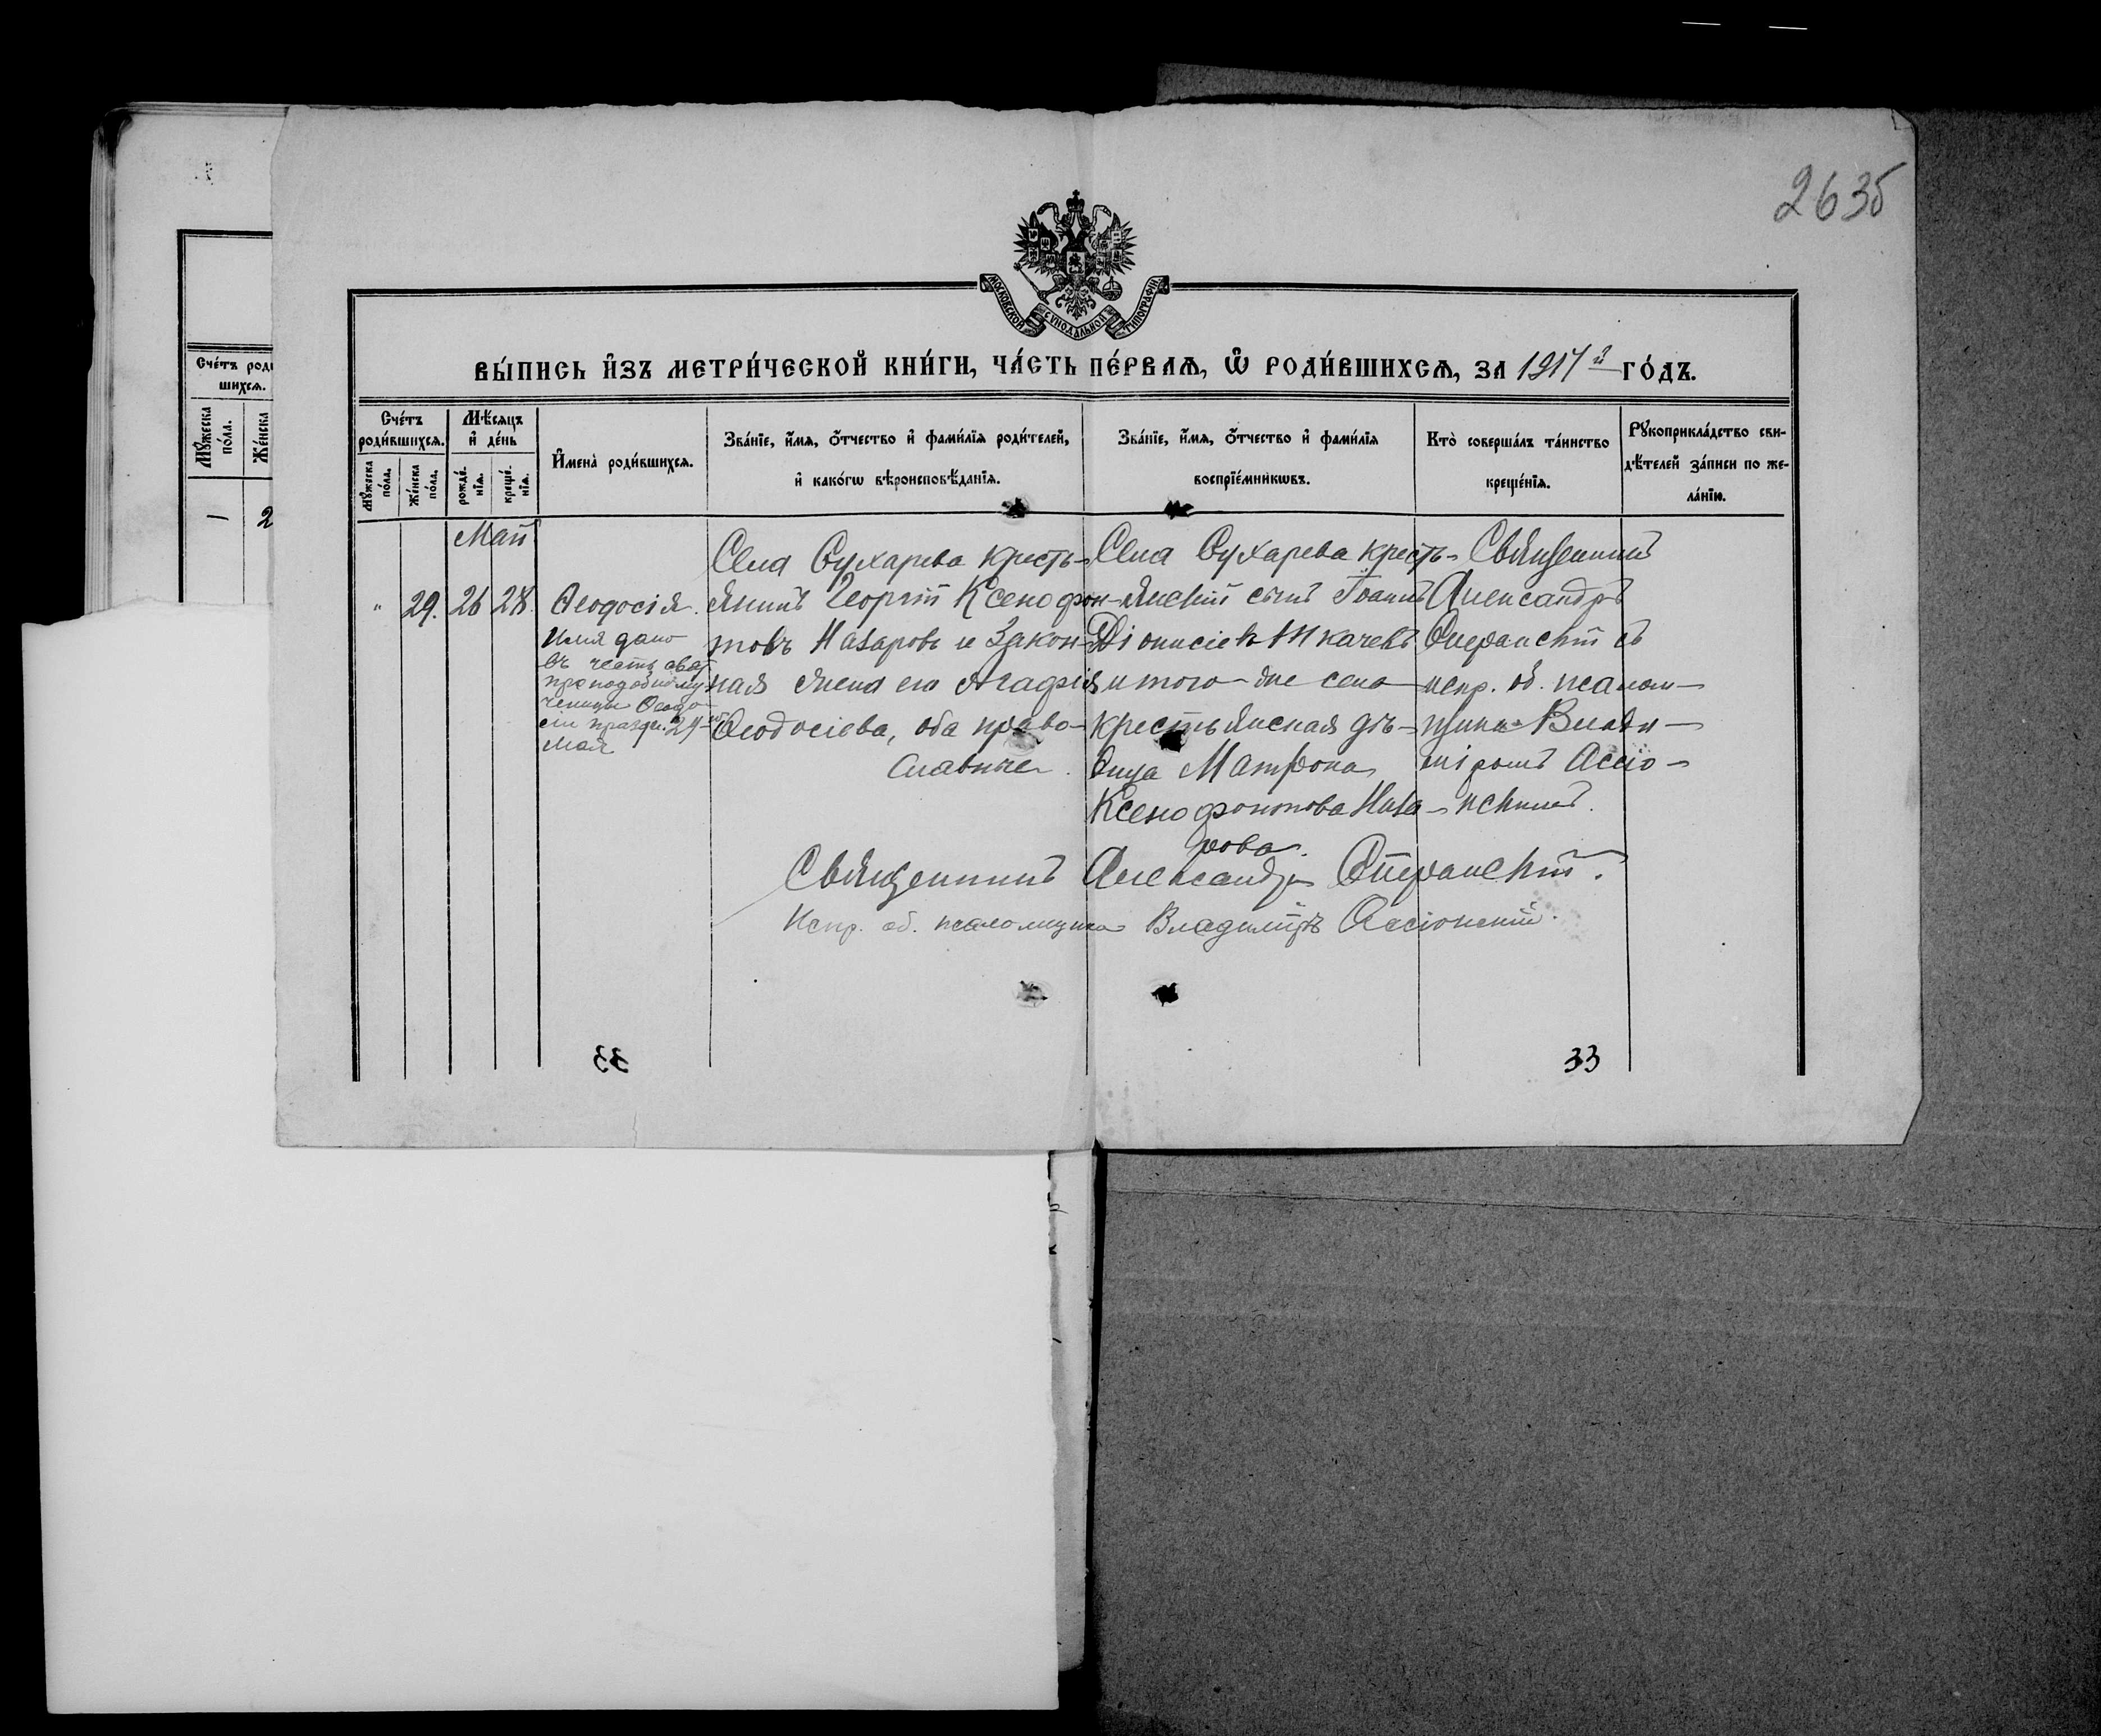 263б
МОСКОВСКОЙ СѴНОДАЛЬНОЙ ТИПОГРАФІИ
ВЫ́ПИСЬ И҆ЗЪ МЕТРИ́ЧЕСКОЙ КНИ́ГИ, ЧА́СТЬ ПЕ́РВАѦ, Ѡ҆ РОДИ́ВШИХСѦ, ЗА 1917й ГО́ДЪ.
Сче́тъ роди́вшихсѧ.
Мꙋ́жеска по́ла.
Же́нска по́ла.
Мѣ́сѧцъ и҆ де́нь
рожде́нїѧ.
креще́нїѧ.
И҆мена̀ роди́вшихсѧ.
Зва́нїе, и҆́мѧ, ѻ҆́тчество и҆ фами́лїѧ роди́телей,
и҆ како́гѡ вѣроисповѣ́данїѧ.
Зва́нїе, и҆́мѧ, ѻ҆́тчество и҆ фами́лїѧ
воспрїе́мникѡвъ.
Кто̀ соверша́лъ та́инство
креще́нїѧ.
Рꙋкоприкла́дство сви-
дѣ́телей за́писи по же-
ла́нїю.
Май
" 29. 26 28.
Ѳеодосія.
Имя дано
въ честь свят.
преподобному-
ченицы Ѳеодо-
сіи праздн. 29-го
мая
Села Сухарева кресть-
янинъ Георгій Ксенофон-
товъ Назаровъ и закон-
ная жена его Агафія
Ѳеодосіева, оба право-
славные.
Села Сухарева кресть-
янскій сынъ Іоаннъ
Діонисіевъ Ткачевъ
и того-же села
крестьянская дѣ-
вица Матрона
Ксенофонтова Наза-
рова.
Священникъ
Александръ
Сперанскій съ
испр. об. псалом-
щика Влади-
міромъ Ассіо-
нскимъ.
Священникъ Александръ Сперанскій.
Испр. об. псаломщика Владиміръ Ассіонскій.
33
33
Сче́тъ роди
шихсѧ.
Мꙋ́жеска по́ла.
Же́нска
1 2